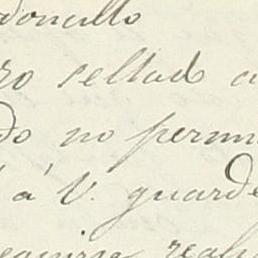 doncillo
ro sellado
do no permi
á V. guarde